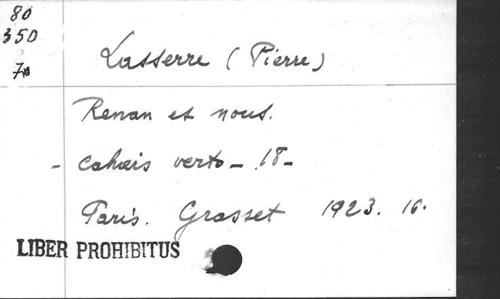 80
350
7a
Lasserre (Pierre)
Renan et nous.
- Cahiers verts - 18 -
Paris. Grasset 1923. 16.
LIBER PROHIBITUS